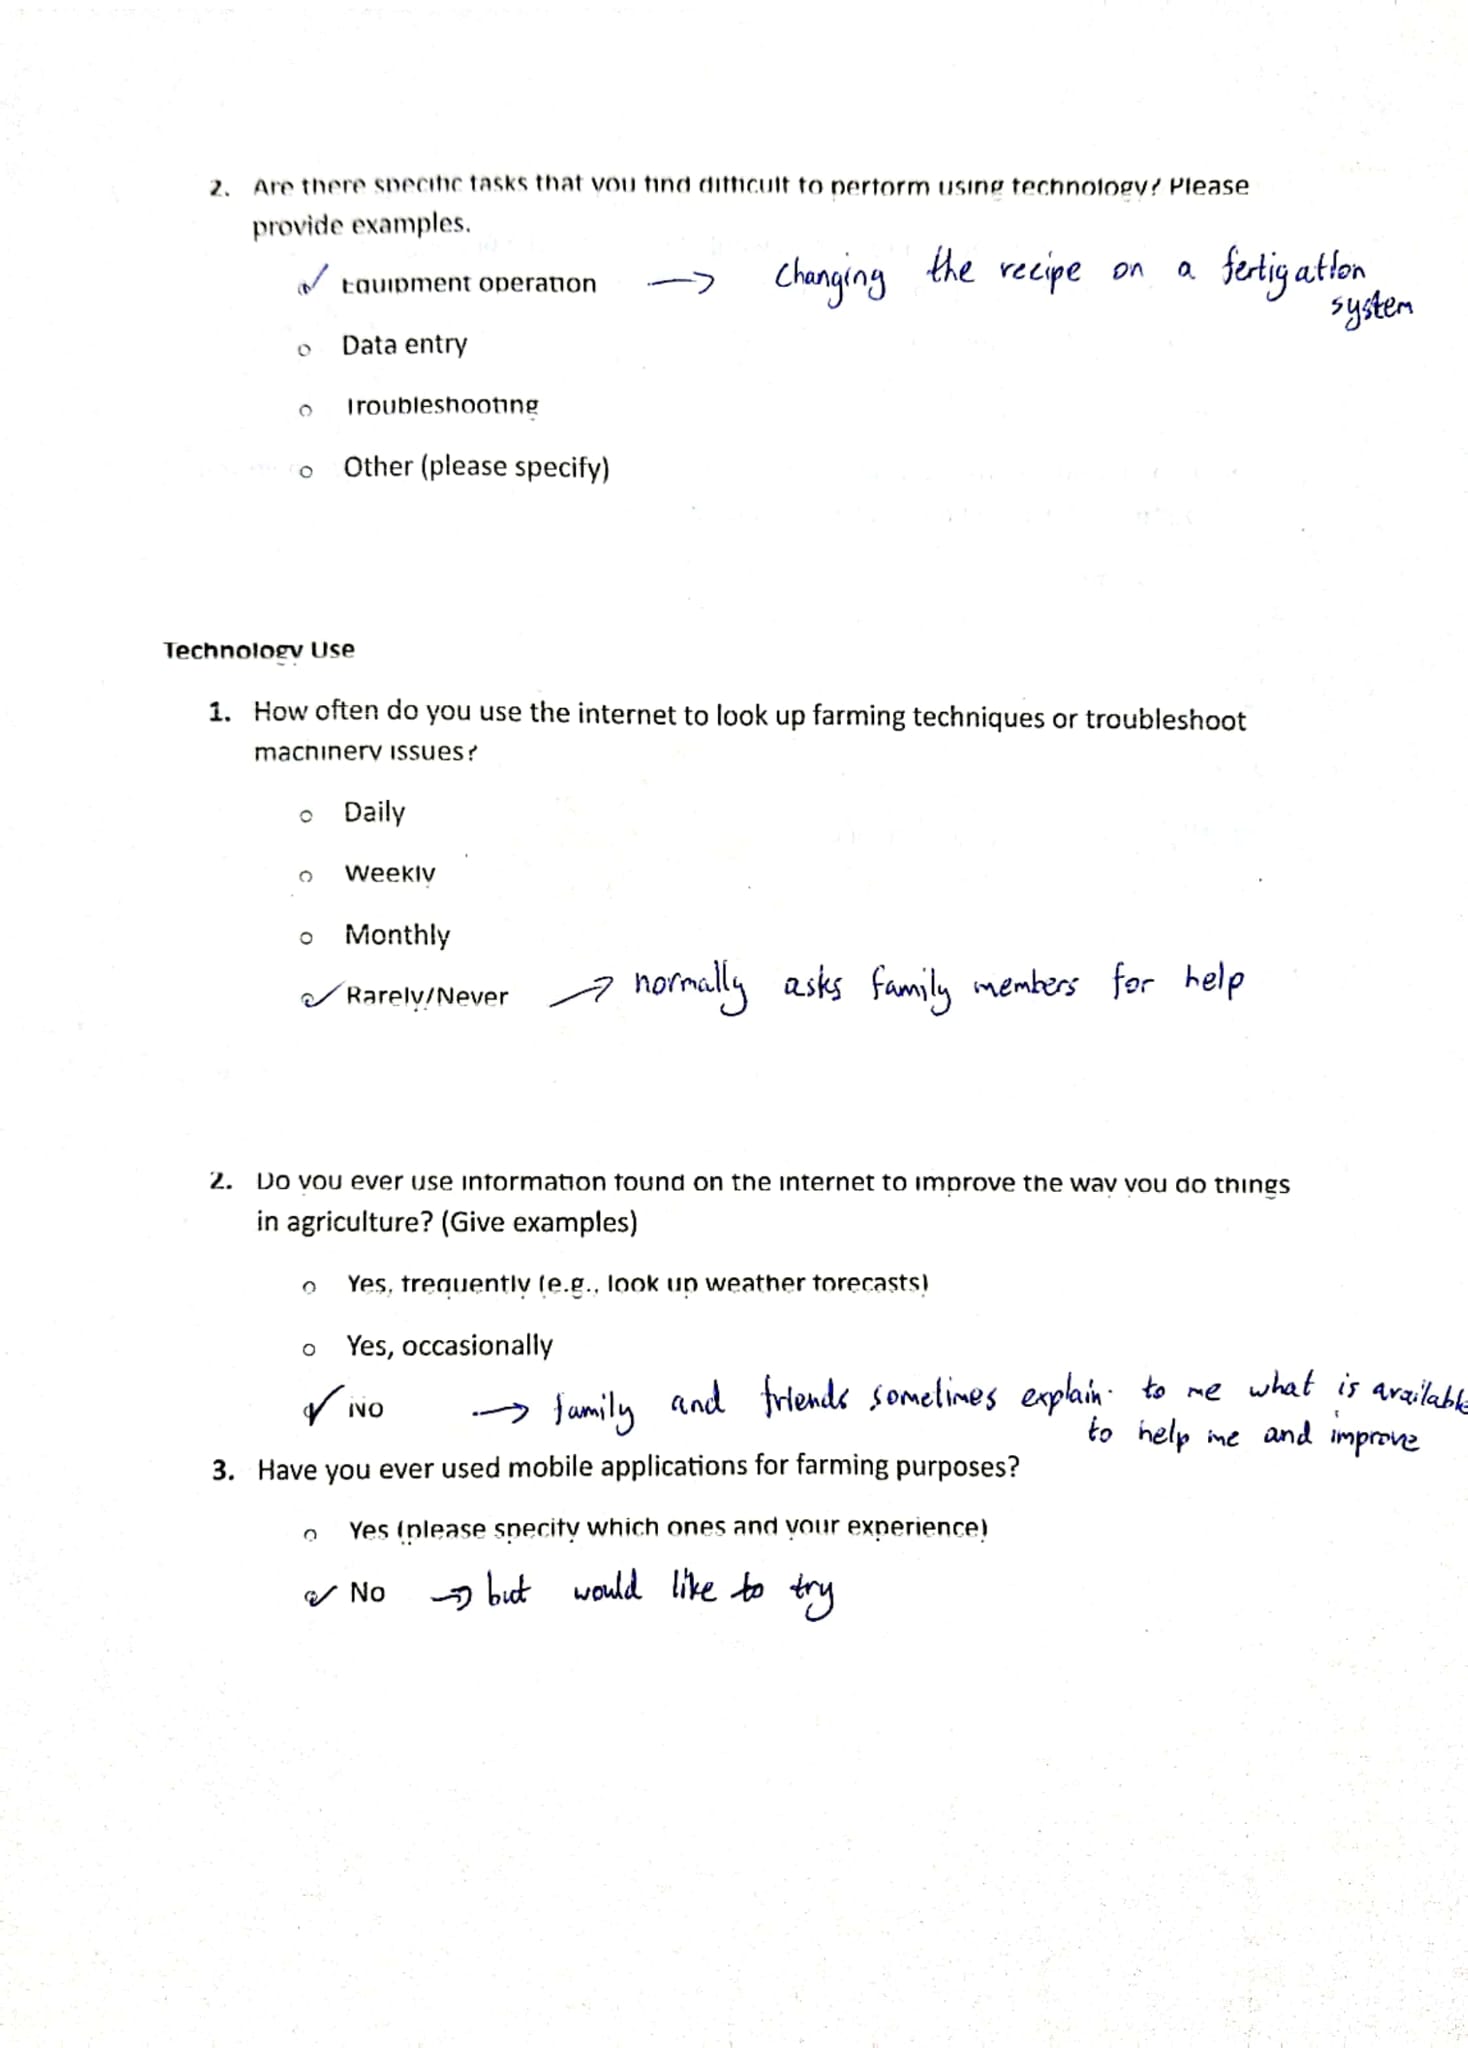 2. Are there specific tasks that you find difficult to perform using technology? Please
provide examples.
✓ Equipment operation → Changing the recipe on a fertigation
system
o Data entry
o Troubleshooting
o Other (please specify)
Technology Use
1. How often do you use the internet to look up farming techniques or troubleshoot
machinery issues?
o Daily
o Weekly
o Monthly
✓ Rarely/Never → normally asks family members for help
2. Do you ever use information found on the internet to improve the way you do things
in agriculture? (Give examples)
o Yes, frequently (e.g., look up weather forecasts)
o Yes, occasionally
✓ No → family and friends sometimes explain to me what is available
to help me and improve
3. Have you ever used mobile applications for farming purposes?
o Yes (please specify which ones and your experience)
✓ No → but would like to try